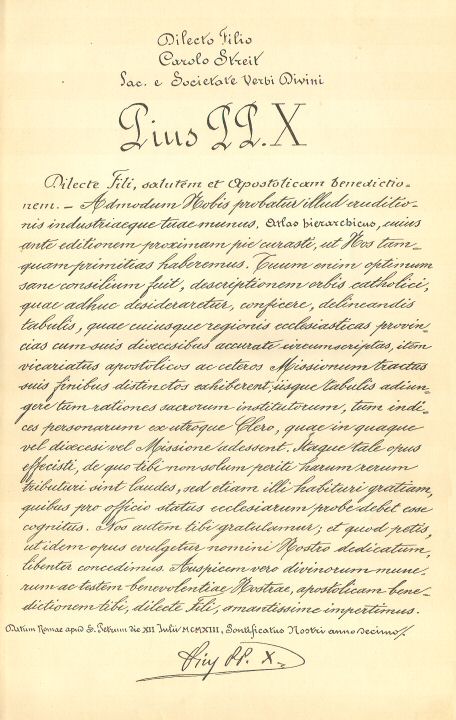 Dilecto Filio
Carolo Streit
Sac. e Societate Verbi Divini
Pius PP. X
Dilecte Fili, salutem et Apostolicam benedictio-
nem. – Admodum Nobis probatur illud eruditio-
nis industriaeque tuae munus, Atlas hierarchicus, cuius
ante editionem proximam pie curasti, ut Nos tam-
quam primitias haberemus. Tuum enim optimum
sane consilium fuit, descriptionem orbis catholici,
quae adhuc desideraretur, conficere, delineandis
tabulis, quae cuiusque regionis ecclesiasticas provin-
cias cum suis dioecesibus accurate circumscriptas, item
vicariatus apostolicos ac ceteros Missionum tractus
suis finibus distinctos exhiberent; iisque tabulis adiun-
gere tum rationes sacrorum institutorum, tum indi-
ces personarum ex utroque Clero, quae in quaque
vel dioecesi vel Missione adessent. Itaque tale opus
effecisti, de quo tibi non solum periti harum rerum
tributuri sint laudes, sed etiam illi habituri gratiam,
quibus pro officio status ecclesiarum probe debet esse
cognitus. Nos autem tibi gratulamur; et quod petis,
ut idem opus evulgetur nomini Nostro dedicatum,
libenter concedimus. Auspicem vero divinorum mune-
rum ac testem benevolentiae Nostrae, apostolicam bene-
dictionem tibi, dilecte Fili, amantissime impertimus.
Datum Romae apud S. Petrum die XII Iulii MCMXIII, Pontificatus Nostri anno decimo/.
Pius PP. X.